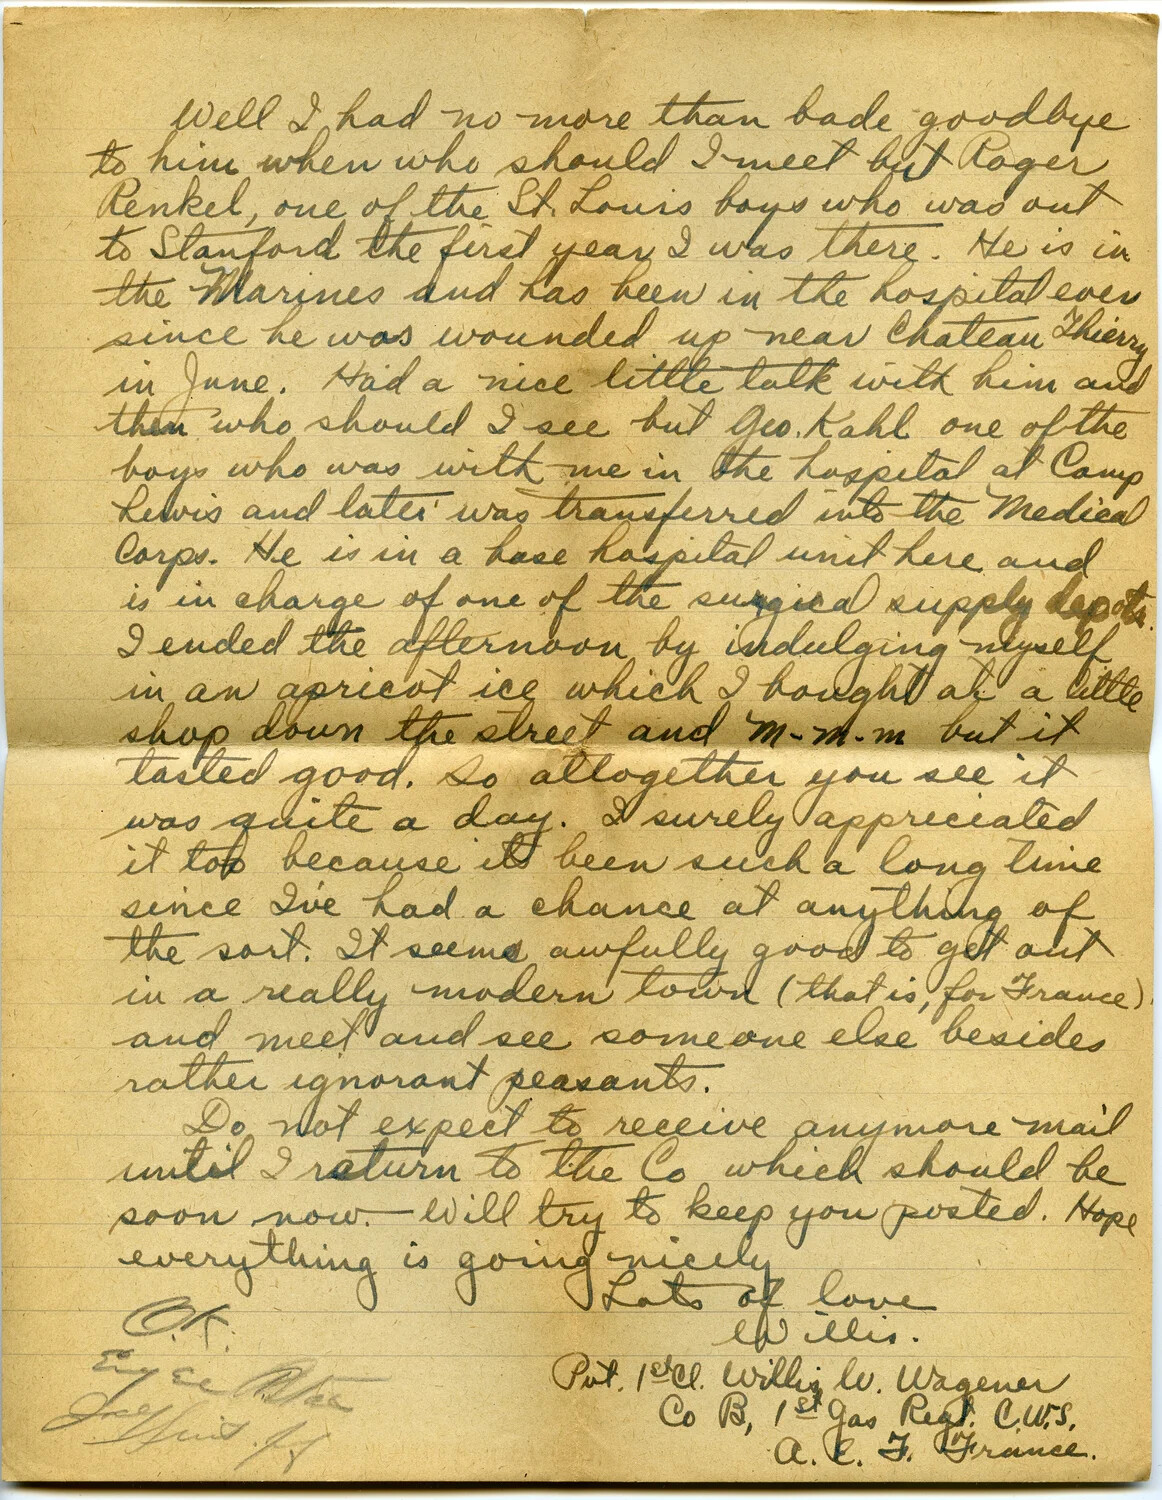 Well I had no more than bade goodbye
to him when who should I meet but Roger
Renkel, one of the St. Louis boys who was out
to Stanford the first year I was there. He is in
the Marines and has been in the hospital ever
since he was wounded up near Chateau Thierry
in June. Had a nice little talk with him and
then who should I see but Geo. Kahl one of the
boys who was with me in the hospital at Camp
Lewis and later was transferred into the Medical
Corps. He is in a base hospital unit here and
is in charge of one of the surgical supply depots.
I ended the afternoon by indulging myself
in an apricot ice which I bought at a little
shop down the street and m-m-m but it
tasted good. So altogether you see it
was quite a day. I surely appreciated
it too because its been such a long time
since I've had a chance at anything of
the sort. It seems awfully good to get out
in a really modern town (that is, for France)
and meet and see someone else besides
rather ignorant peasants.
Do not expect to receive anymore mail
until I return to the Co which should be
soon now. - Will try to keep you posted. Hope
everything is going nicely
Lots of love
Willis.
Pvt. 1st Cl. Willis W. Wagener
Co B, 1st Gas Regt. C.W.S.
A. E. F. France.
O.K.